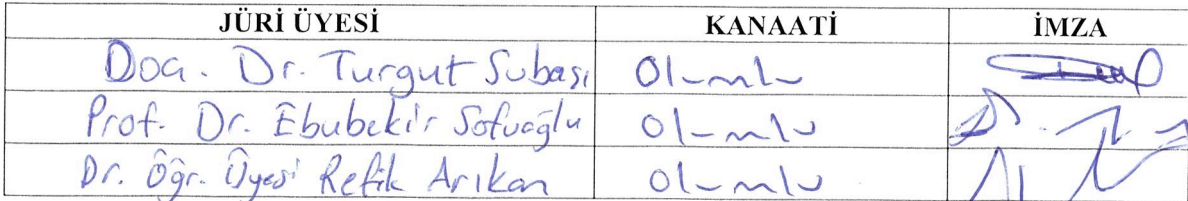 JÜRİ ÜYESİ KANAATİ İMZA
Doç. Dr. Turgut Subaşı Olumlu
Prof. Dr. Ebubekir Sofuoğlu Olumlu
Dr. Öğr. Üyesi Refik Arıkan Olumlu